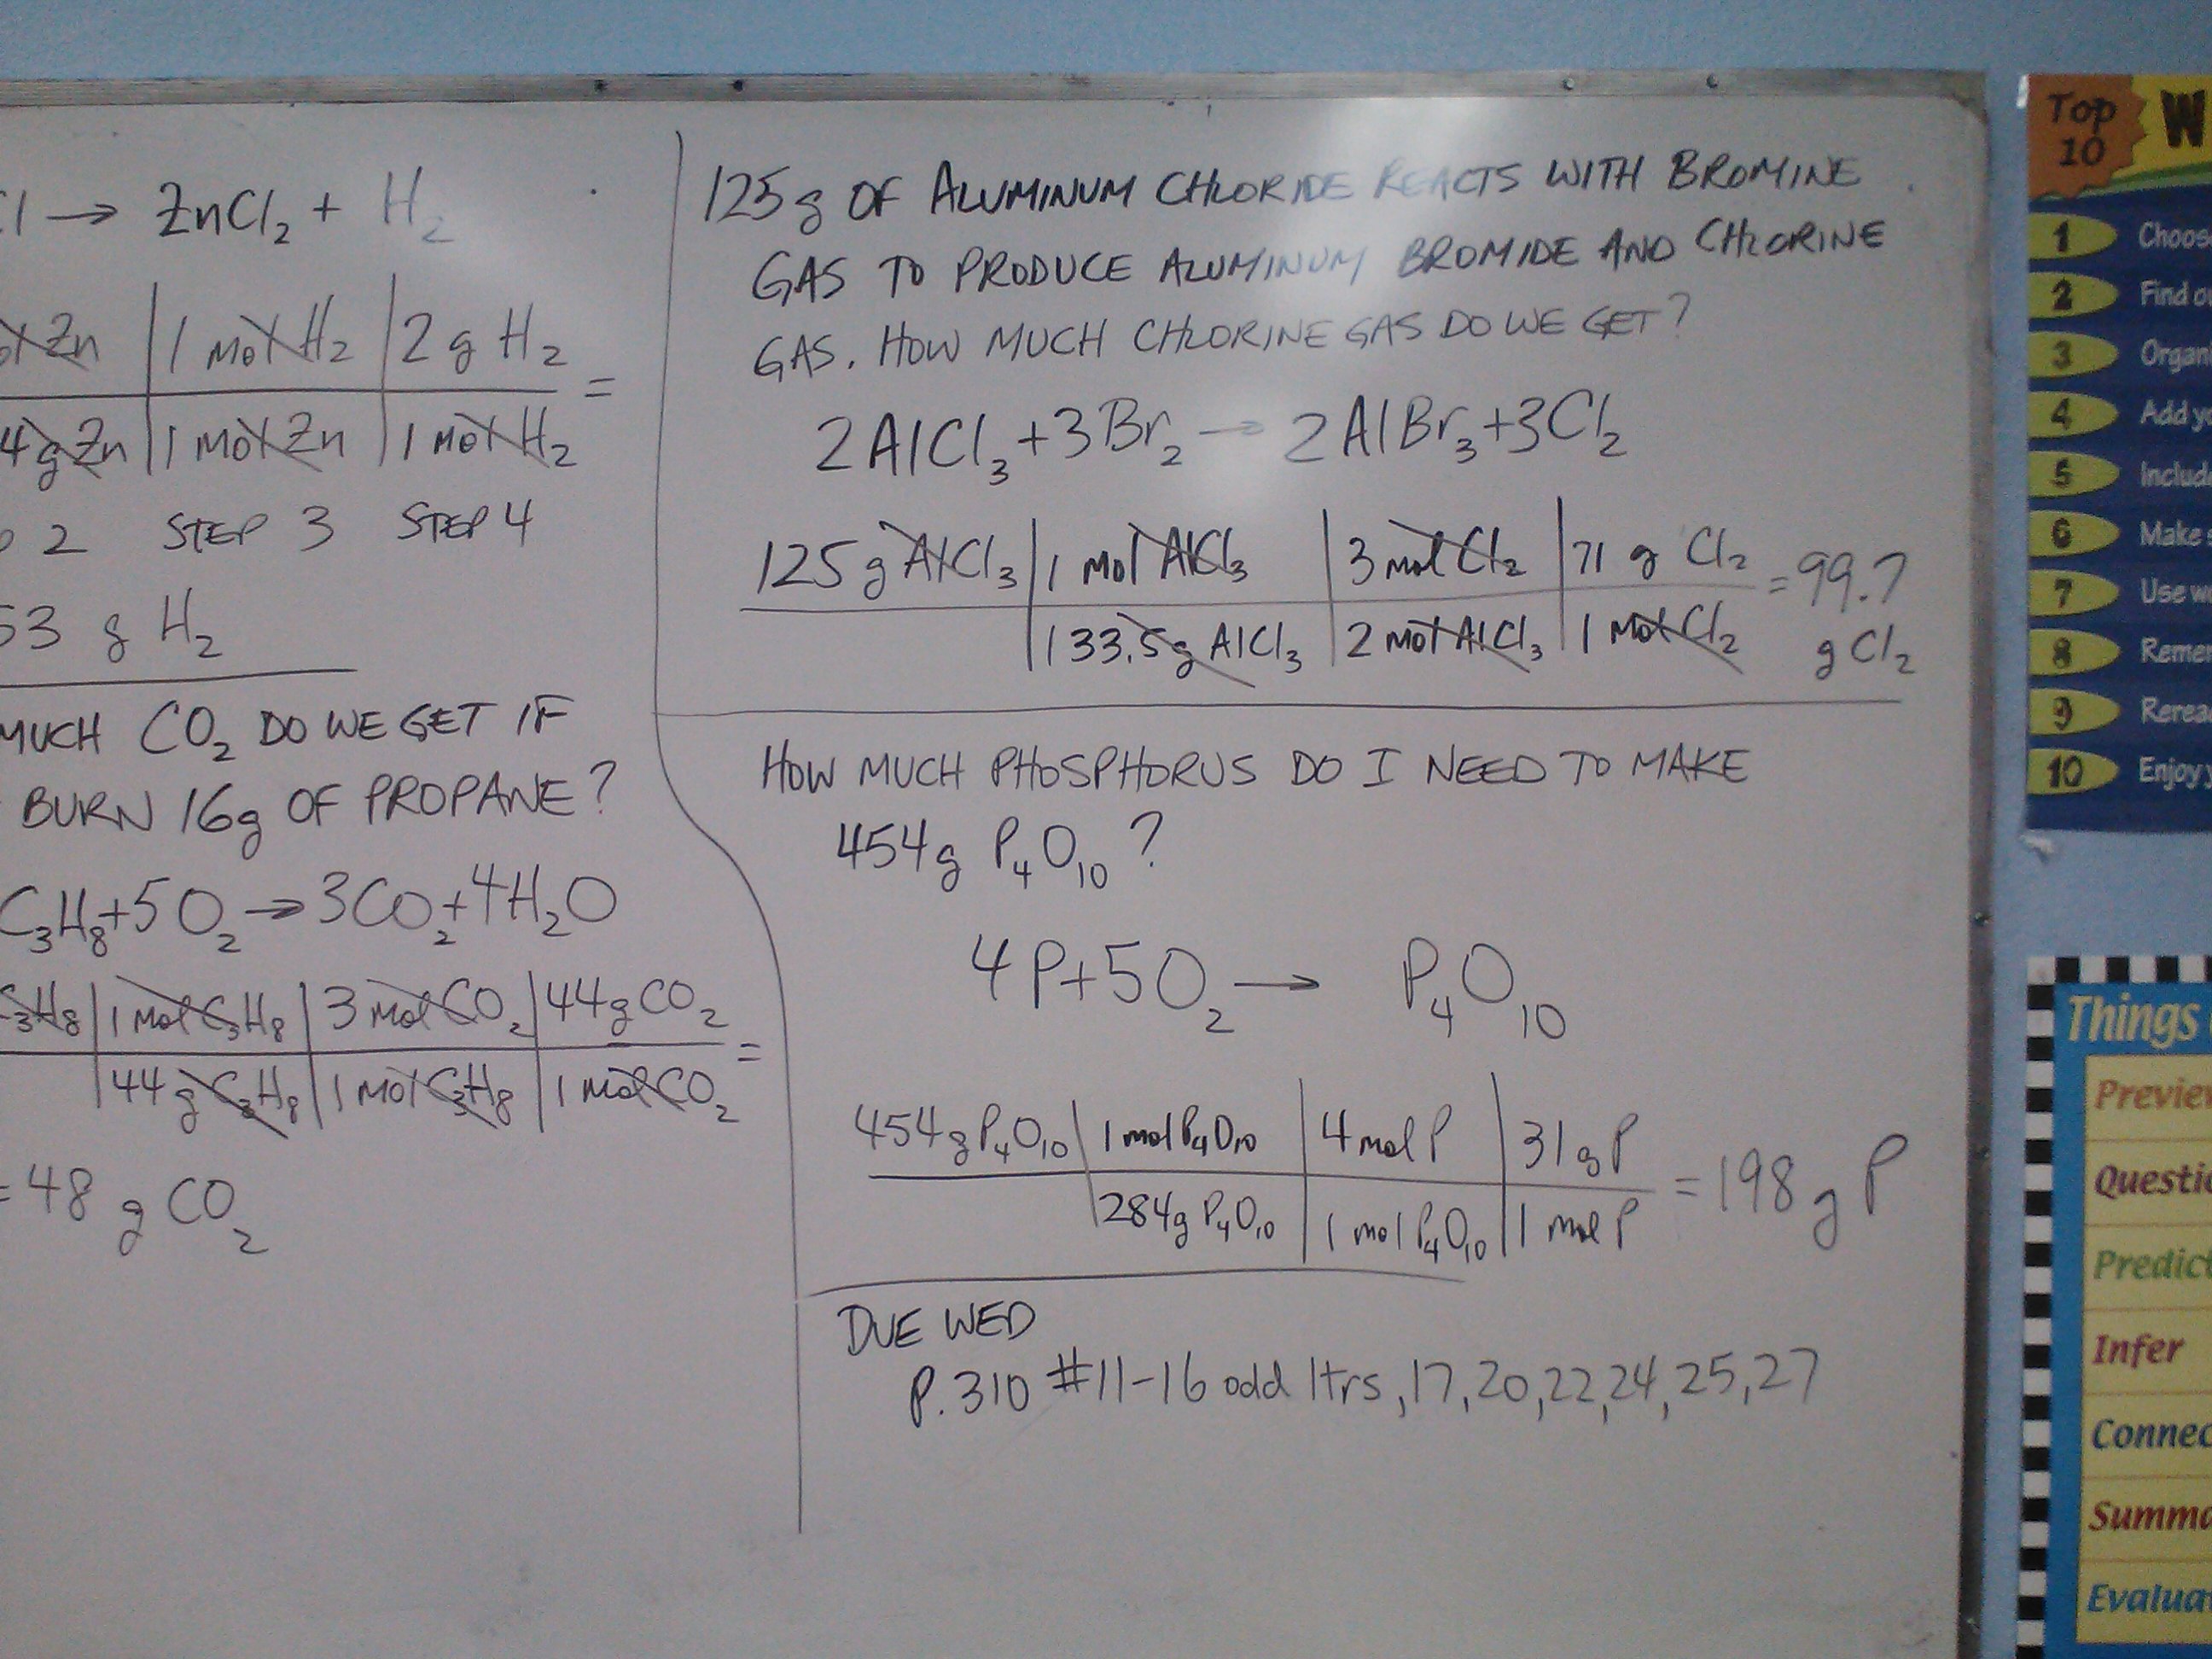 Cl → ZnCl₂ + H₂
Zn | 1 mol H₂ | 2 g H₂ =
4 g Zn | 1 mol Zn | 1 mol H₂
2 STEP 3 STEP 4
53 g H₂
MUCH CO₂ DO WE GET IF
BURN 16g OF PROPANE?
C₃H₈+5O₂→3CO₂+4H₂O
C₃H₈ | 1 mol C₃H₈ | 3 mol CO₂ | 44g CO₂ =
44 g C₃H₈ | 1 mol C₃H₈ | 1 mol CO₂
= 48 g CO₂
125g OF ALUMINUM CHLORIDE REACTS WITH BROMINE
GAS TO PRODUCE ALUMINUM BROMIDE AND CHLORINE
GAS. HOW MUCH CHLORINE GAS DO WE GET?
2AlCl₃+3Br₂→2AlBr₃+3Cl₂
125 g AlCl₃ | 1 mol AlCl₃ | 3 mol Cl₂ | 71 g Cl₂ = 99.7
133.5g AlCl₃ | 2 mol AlCl₃ | 1 mol Cl₂ g Cl₂
HOW MUCH PHOSPHORUS DO I NEED TO MAKE
454g P₄O₁₀?
4P+5O₂→ P₄O₁₀
454g P₄O₁₀ | 1 mol P₄O₁₀ | 4 mol P | 31 g P = 198 g P
284g P₄O₁₀ | 1 mol P₄O₁₀ | 1 mol P
DUE WED
P.310 #11-16 odd ltrs, 17, 20, 22, 24, 25, 27
Top
10 W
1 Choos
2 Find ou
3 Organi
4 Add yo
5 Include
6 Make s
7 Use wo
8 Remem
9 Rerea
10 Enjoy y
Things
Preview
Questio
Predict
Infer
Connec
Summa
Evalua